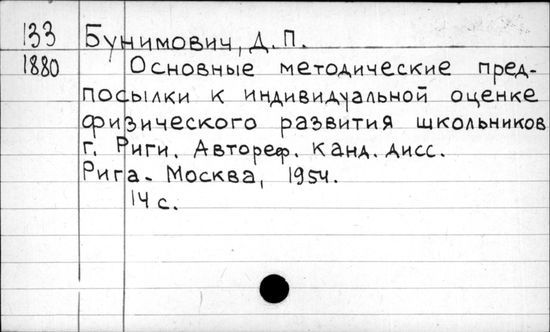 133 Бунимович, Д.П.
1880 Основные методические пред-
посылки к индивидуальной оценке
физического развития школьников
г. Риги. Автореф. канд. дисс.
Рига - Москва, 1954.
14 с.